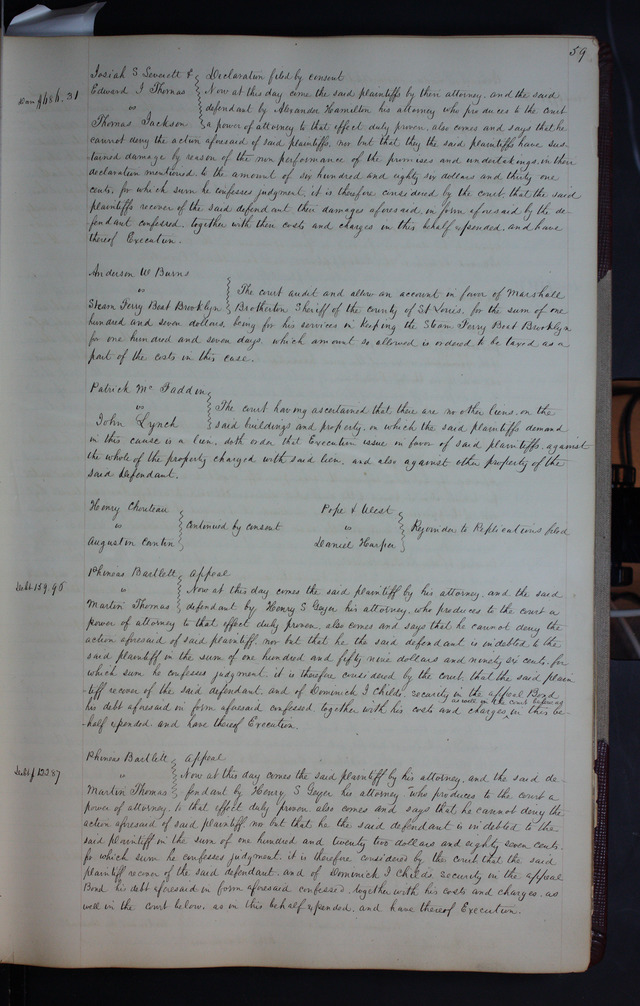 59
Josiah S Leverett & } Declaration filed by consent
Dam $686.31
Edward J Thomas } Now at this day come the said plaintiffs by their attorney, and the said
vs } defendant by Alexander Hamilton his attorney who produces to the court
Thomas Jackson } a power of attorney to that effect duly proven, also comes and says that he
cannot deny the action aforesaid of said plaintiffs, nor but that they the said plaintiffs have sus-
tained damage by reason of the non performance of the promises and undertakings in their
declaration mentioned to the amount of six hundred and eighty six dollars and thirty one
cents, for which sum he confesses judgment, it is therefore considered by the court, that the said
plaintiffs recover of the said defendant their damages aforesaid, in form aforesaid by the de-
fendant confessed, together with their costs and charges in this behalf expended, and have
thereof Execution.
Anderson W Burns
vs } The court audit and allow an account in favor of Marshall
Steam Ferry Boat Brooklyn } Brotherton Sheriff of the county of St Louis, for the sum of one
hundred and seven dollars, being for his services in keeping the Steam Ferry Boat Brooklyn
for one hundred and seven days, which amount so allowed is ordered to be taxed as a
part of the costs in this case.
Patrick Mc Faddin
vs } The court having ascertained that there are no other liens, on the
John Lynch } said buildings and property, on which the said plaintiffs demand
in this cause is a lien, doth order that Execution issue in favor of said plaintiffs, against
the whole of the property charged with said lien, and also against other property of the
said defendant.
Henry Chouteau
vs } Continued by consent
Augustin Cantin
Pope & West
vs } Rejoinder to Replications filed
Daniel Harper
Phineas Bartlett } Appeal
Debt 159.96
vs } Now at this day comes the said plaintiff by his attorney, and the said
Martin Thomas } defendant by Henry S Geyer his attorney, who produces to the court a
power of attorney to that effect duly proven, also comes and says that he cannot deny the
action aforesaid of said plaintiff, nor but that he the said defendant is indebted to the
said plaintiff in the sum of one hundred and fifty nine dollars and ninety six cents, for
which sum he confesses judgment, it is therefore considered by the court, that the said plain
tiff recover of the said defendant, and of Dominick J Childs, security in the appeal Bond
as well in the court
his debt aforesaid in form aforesaid confessed, together with his costs and charges, in this be
half expended, and have thereof Execution.
Phineas Bartlett } Appeal
Debt $122.87
" } Now at this day comes the said plaintiff by his attorney, and the said de-
Martin Thomas } fendant by Henry S Geyer his attorney, who produces to the court a
power of attorney, to that effect duly proven, also comes and says that he cannot deny the
action aforesaid of said plaintiff, nor but that, he the said defendant is indebted to the
said plaintiff in the sum of one hundred and twenty two dollars and eighty seven cents,
for which sum he confesses judgment, it is therefore considered by the court that the said
plaintiff recover of the said defendant, and of Dominick J Childs, security in the appeal
Bond his debt aforesaid in form aforesaid confessed, together with his costs and charges, as
well in the court below, as in this behalf expended, and have thereof Execution.